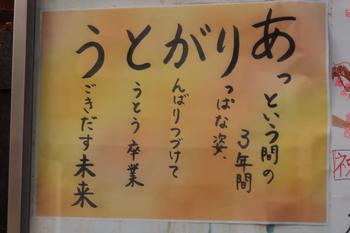 あっという間の
3年間
りっぱな姿
がんばりつづけて
とうとう卒業
うごきだす未来
祝